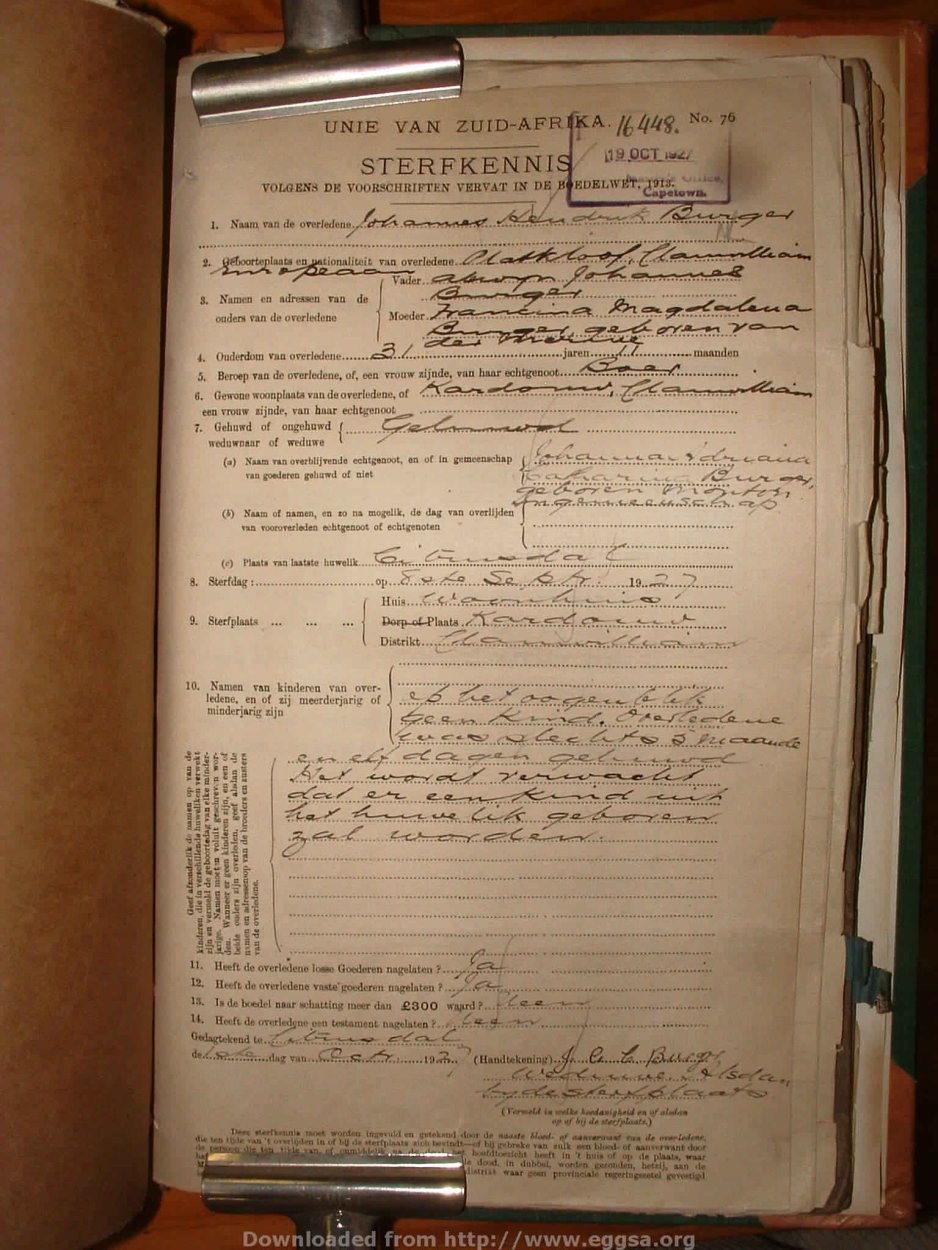 UNIE VAN ZUID-AFRIKA. 16448. No. 76
19 OCT 1927
STERFKENNIS
Master's Office,
VOLGENS DE VOORSCHRIFTEN VERVAT IN DE BOEDELWET, 1913.
Capetown.
1. Naam van de overledene Johannes Hendrik Burger
2. Geboorteplaats en nationaliteit van overledene Platkloof, Clanwilliam
Europeaan
Vader Alwyn Johannes
Burger
3. Namen en adressen van de ouders van de overledene
Moeder Francina Magdalena
Burger geboren van
der Merwe
4. Ouderdom van overledene 31 jaren 11 maanden
5. Beroep van de overledene, of, een vrouw zijnde, van haar echtgenoot Boer
6. Gewone woonplaats van de overledene, of Kardouw, Clanwilliam
een vrouw zijnde, van haar echtgenoot
7. Gehuwd of ongehuwd Gehuwd
weduwnaar of weduwe
(a) Naam van overblijvende echtgenoot, en of in gemeenschap Johanna Adriana
van goederen gehuwd of niet Catharina Burger,
geboren Mouton
In gemeenschap
(b) Naam of namen, en zo na mogelik, de dag van overlijden
van vooroverleden echtgenoot of echtgenoten
(c) Plaats van laatste huwelik Citrusdal
8. Sterfdag: op 8ste Septr. 1927
Huis Woonhuis
9. Sterfplaats ... ... ... Dorp of Plaats Kardouw
Distrikt Clanwilliam
10. Namen van kinderen van overledene, en of zij meerderjarig of minderjarig zijn
op het oogenblik
geen kind. Overledene
was slechts 5 maande
en elf dagen gehuwd
Het wordt verwacht
dat er een kind uit
het huwelik geboren
zal worden.
Geef afzonderlik de namen op van de
kinderen, die in verschillende huweliken verwekt
zijn en vermeld de geboortedag van elke minder-
jarige. Namen moeten voluit geschreven wor-
den. Wanneer er geen kinderen zijn, en een of
beide ouders zijn overleden, geef alsdan de
namen en adressen op van de broeders en zusters
van de overledene.
11. Heeft de overledene losse Goederen nagelaten? Ja
12. Heeft de overledene vaste goederen nagelaten? Ja
13. Is de boedel naar schatting meer dan £300 waard? Neen
14. Heeft de overledene een testament nagelaten? Neen
Gedagtekend te Citrusdal
de 1ste dag van Octr. 1927 (Handtekening) J. A. C. Burger
Weduwe. Alsdan
by de sterfplaats
(Vermeld in welke hoedanigheid en of alsdan
op of bij de sterfplaats.)
Deze sterfkennis moet worden ingevuld en getekend door de naaste bloed- of aanverwant van de overledene,
die ten tijde van 't overlijden in of bij de sterfplaats zich bevindt—of bij gebreke van zulk een bloed- of aanverwant door
de persoon die ten tijde van, of onmiddellik na de dood, het hoofdtoezicht heeft in 't huis of op de plaats, waar
de dood, in dubbel, worden gezonden, hetzij, aan de
distrikt waar geen provinciale regeringszetel gevestigd
Downloaded from http://www.eggsa.org